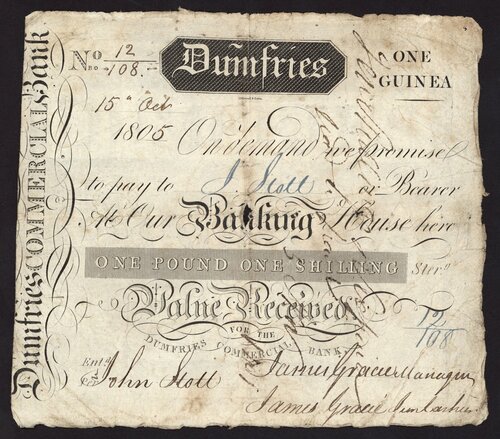 Dumfries COMMERCIAL Bank
No 12
Bo 108.-
Dumfries
ONE
GUINEA
15th Oct
1805 On demand we promise
to pay to J. Stott or Bearer
At Our Banking House here
ONE POUND ONE SHILLING Ster.
Value Received
12/108
FOR THE
DUMFRIES COMMERCIAL BANK
Entd
John Stott
James Gracie Manager
James Gracie Junr Cashier